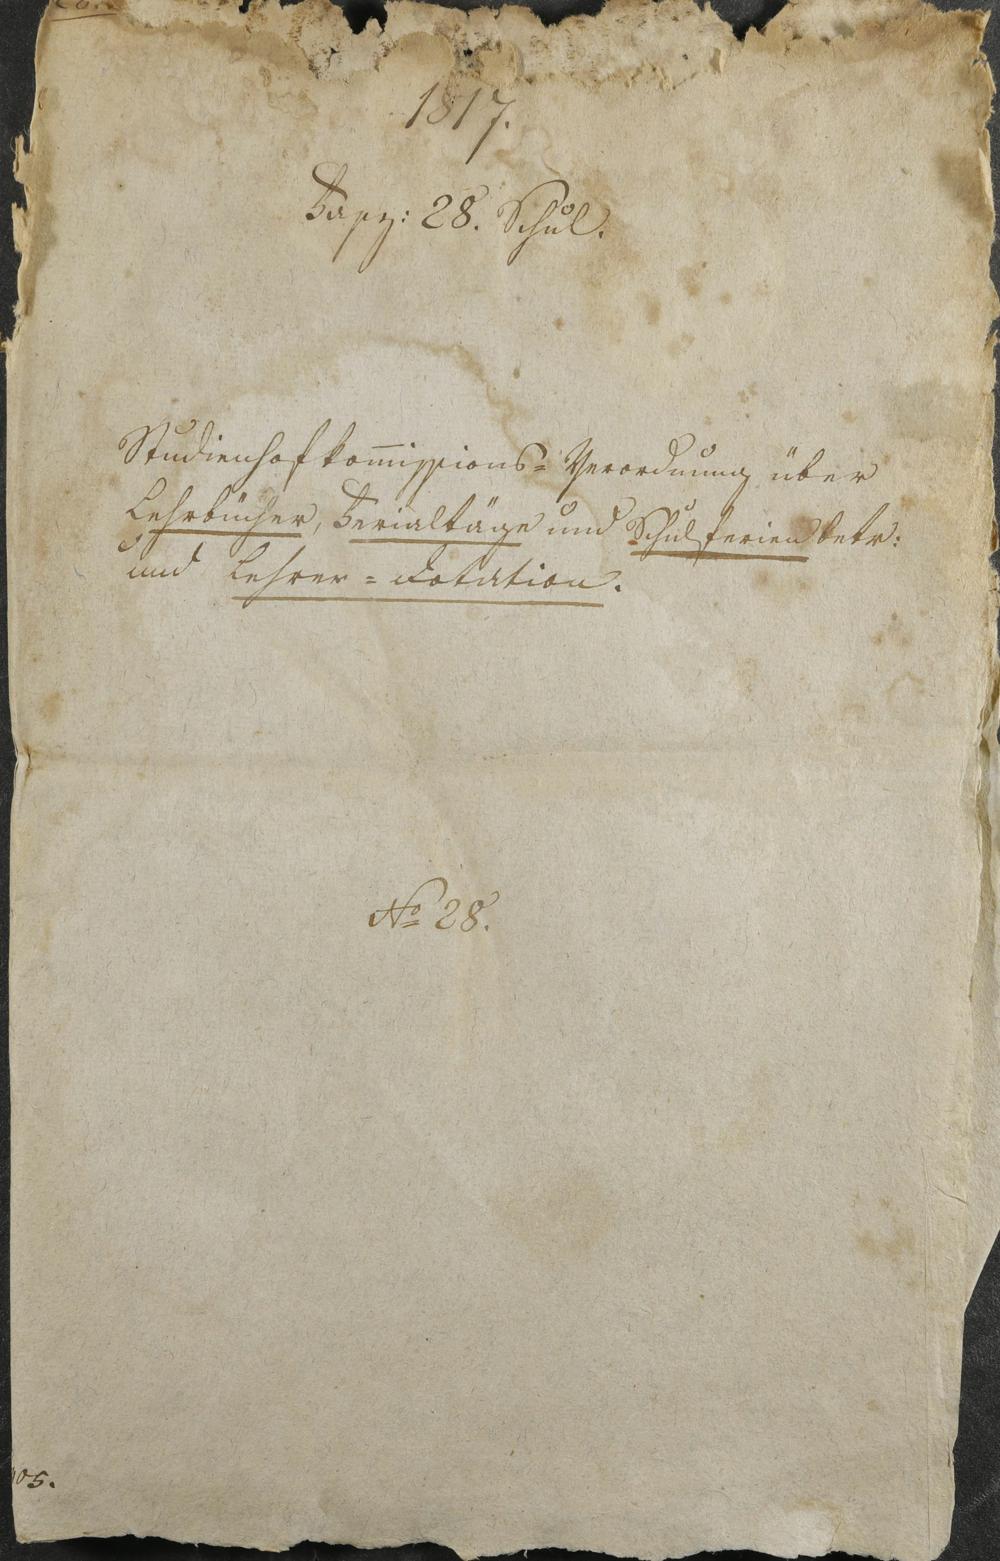 28.
1817.
Fasz: 28. Schul.
Studienhofkom̅issions= Verordnung über
Lehrbücher, Ferialtäge und Schulferien betr:
und Lehrer = Dotation.
No 28.
05.